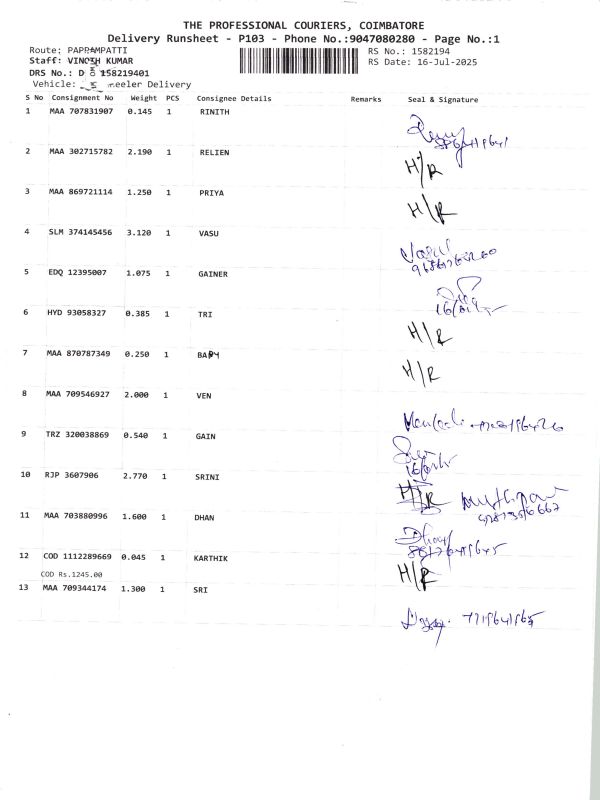 THE PROFESSIONAL COURIERS, COIMBATORE
Delivery Runsheet - P103 - Phone No.:9047080280 - Page No.:1
Route: PAPPAMPATTI
RS No.: 1582194
Staff: VINOTH KUMAR
RS Date: 16-Jul-2025
DRS No.: D 158219401
Vehicle: Wheeler Delivery
S No Consignment No Weight PCS Consignee Details Remarks Seal & Signature
1 MAA 707831907 0.145 1 RINITH
2 MAA 302715782 2.190 1 RELIEN H/R
3 MAA 869721114 1.250 1 PRIYA H/R
4 SLM 374145456 3.120 1 VASU
5 EDQ 12395007 1.075 1 GAINER
6 HYD 93058327 0.385 1 TRI H/R
7 MAA 870787349 0.250 1 BABY H/R
8 MAA 709546927 2.000 1 VEN
9 TRZ 320038869 0.540 1 GAIN
10 RJP 3607906 2.770 1 SRINI H/R
11 MAA 703880996 1.600 1 DHAN
12 COD 1112289669 0.045 1 KARTHIK H/R
COD Rs.1245.00
13 MAA 709344174 1.300 1 SRI